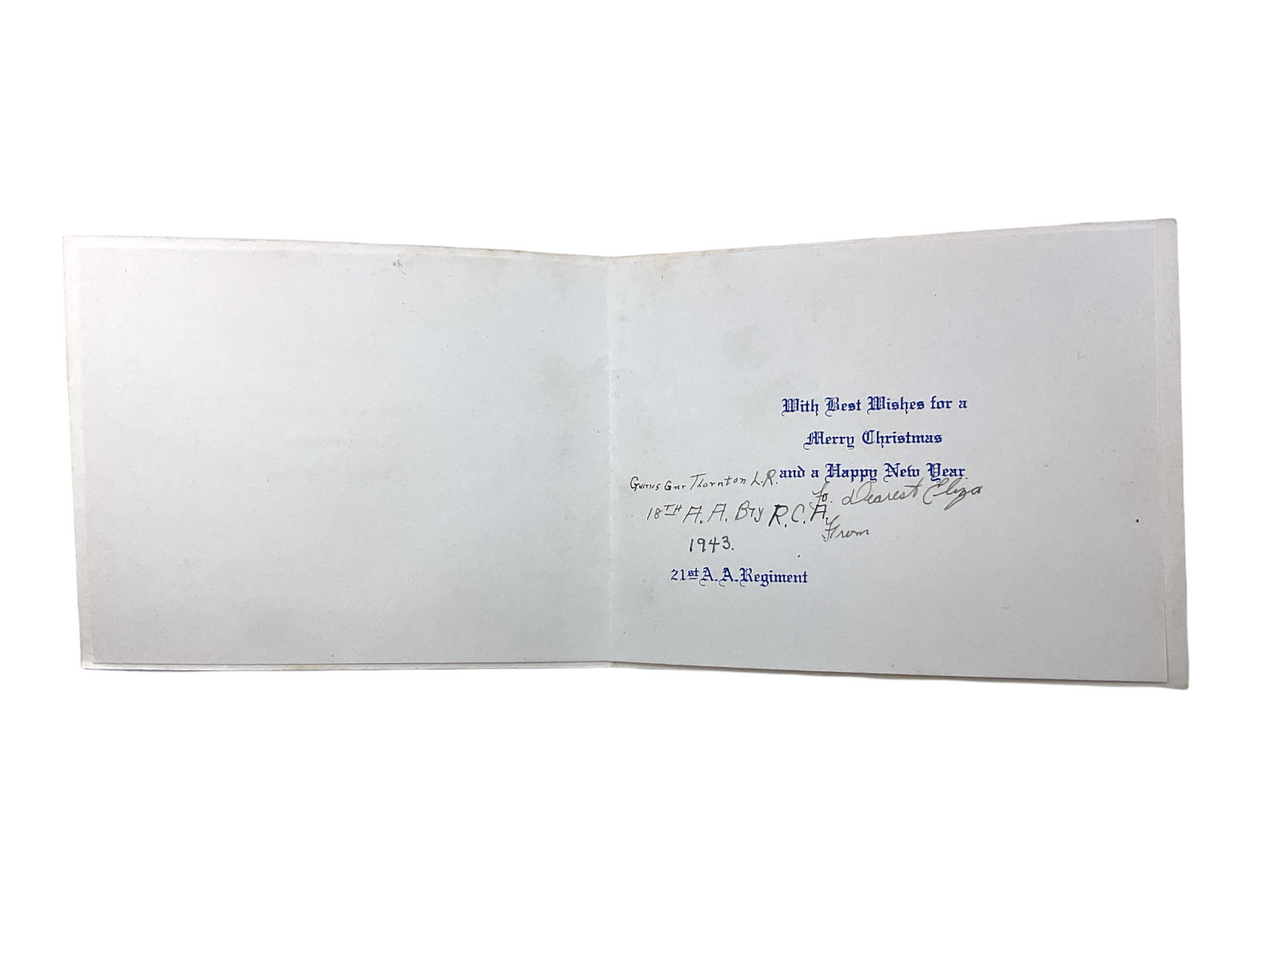 With Best Wishes for a
Merry Christmas
and a Happy New Year.
To. Dearest Eliza
From
Gnr Thornton L.R.
18TH A. A. Bty R.C.A.
1943.
21st A. A. Regiment